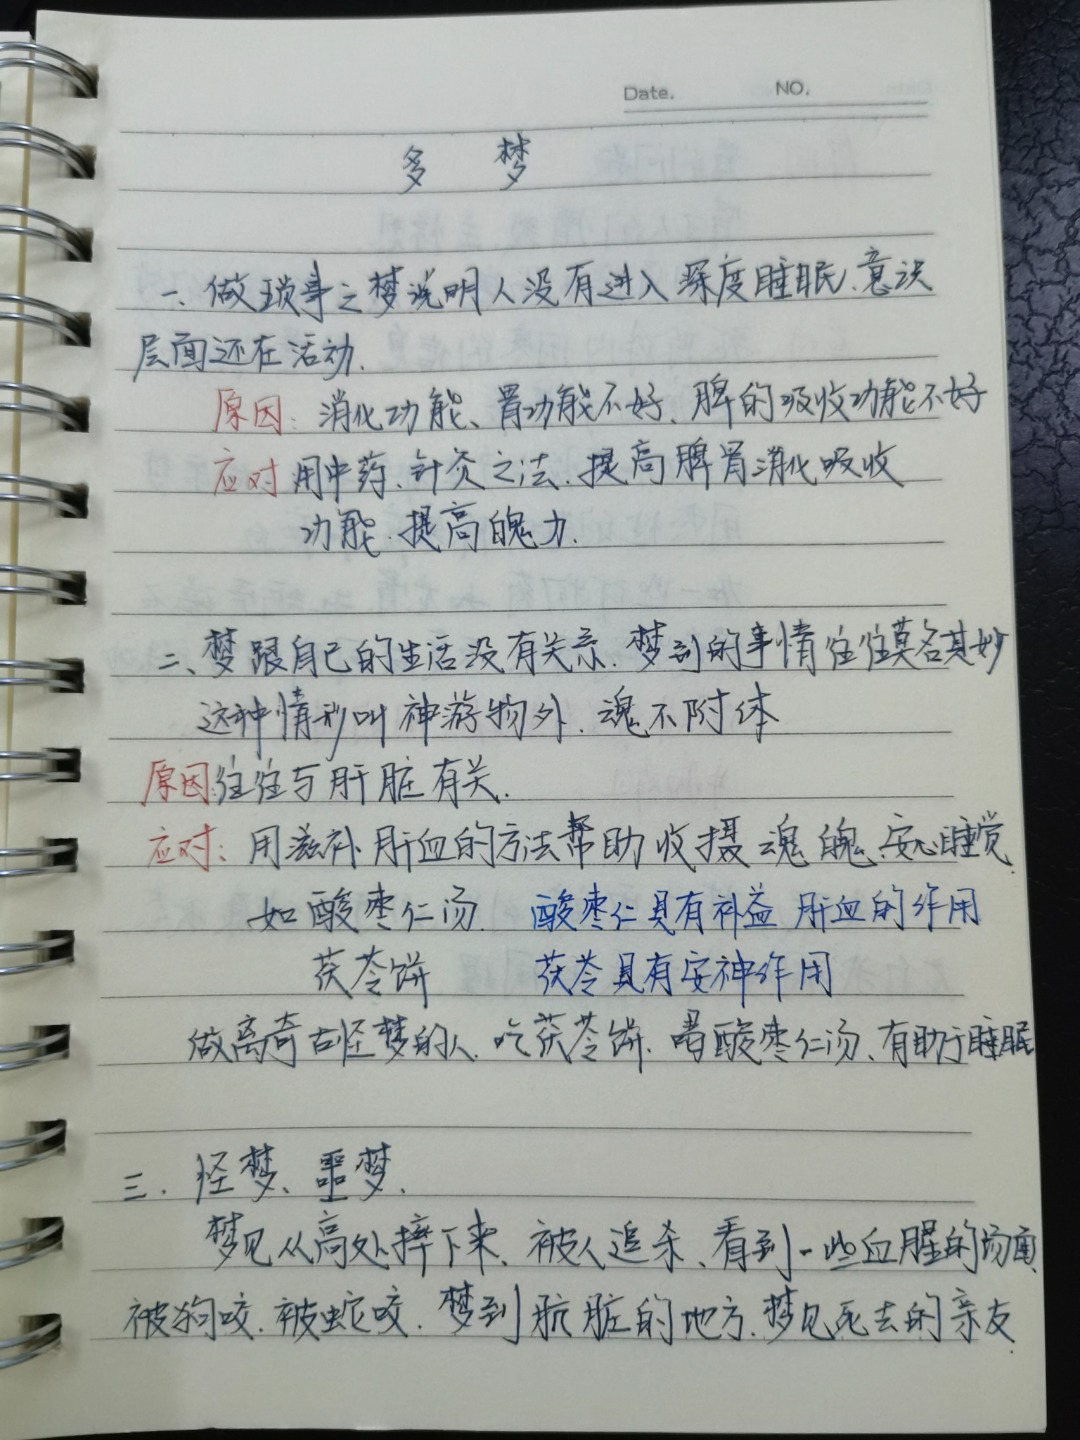 Date. NO.
多 梦
一、做琐事之梦说明人没有进入深度睡眠、意识
层面还在活动.
原因: 消化功能、胃功能不好、脾的吸收功能不好
应对 用中药、针灸之法、提高脾胃消化吸收
功能、提高魄力.
二、梦跟自己的生活没有关系、梦到的事情往往莫名其妙
这种情形叫神游物外、魂不附体
原因:往往与肝脏有关.
应对: 用滋补肝血的方法帮助收摄魂魄、安心睡觉.
如酸枣仁汤. 酸枣仁具有补益肝血的作用
茯苓饼 茯苓具有安神作用
做离奇古怪梦的人、吃茯苓饼、喝酸枣仁汤、有助于睡眠
三. 怪梦、噩梦、
梦见从高处摔下来、被人追杀、看到一些血腥的场面
被狗咬、被蛇咬、梦到肮脏的地方、梦见死去的亲友.